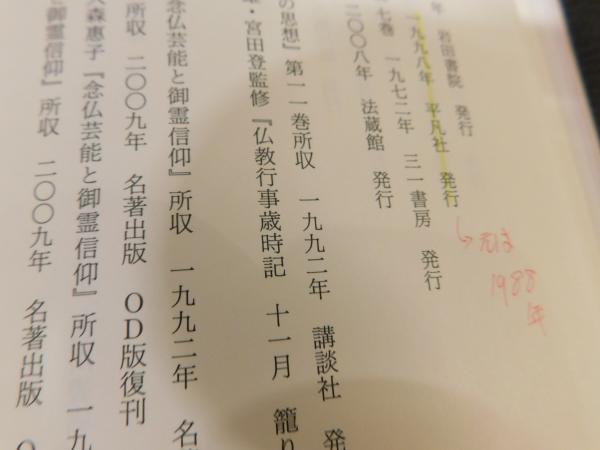 年 岩田書院 発行
一九九八年 平凡社 発行
→元は
1988
年
七巻 一九七二年 三一書房 発行
二〇〇八年 法蔵館 発行
の思想』第一一巻所収 一九九二年 講談社 発
・宮田登監修『仏教行事歳時記 十一月 籠り
念仏芸能と御霊信仰』所収 一九九二年 名
所収 二〇〇九年 名著出版 OD版復刊
大森惠子『念仏芸能と御霊信仰』所収 一九
と御霊信仰』所収 二〇〇九年 名著出版 O